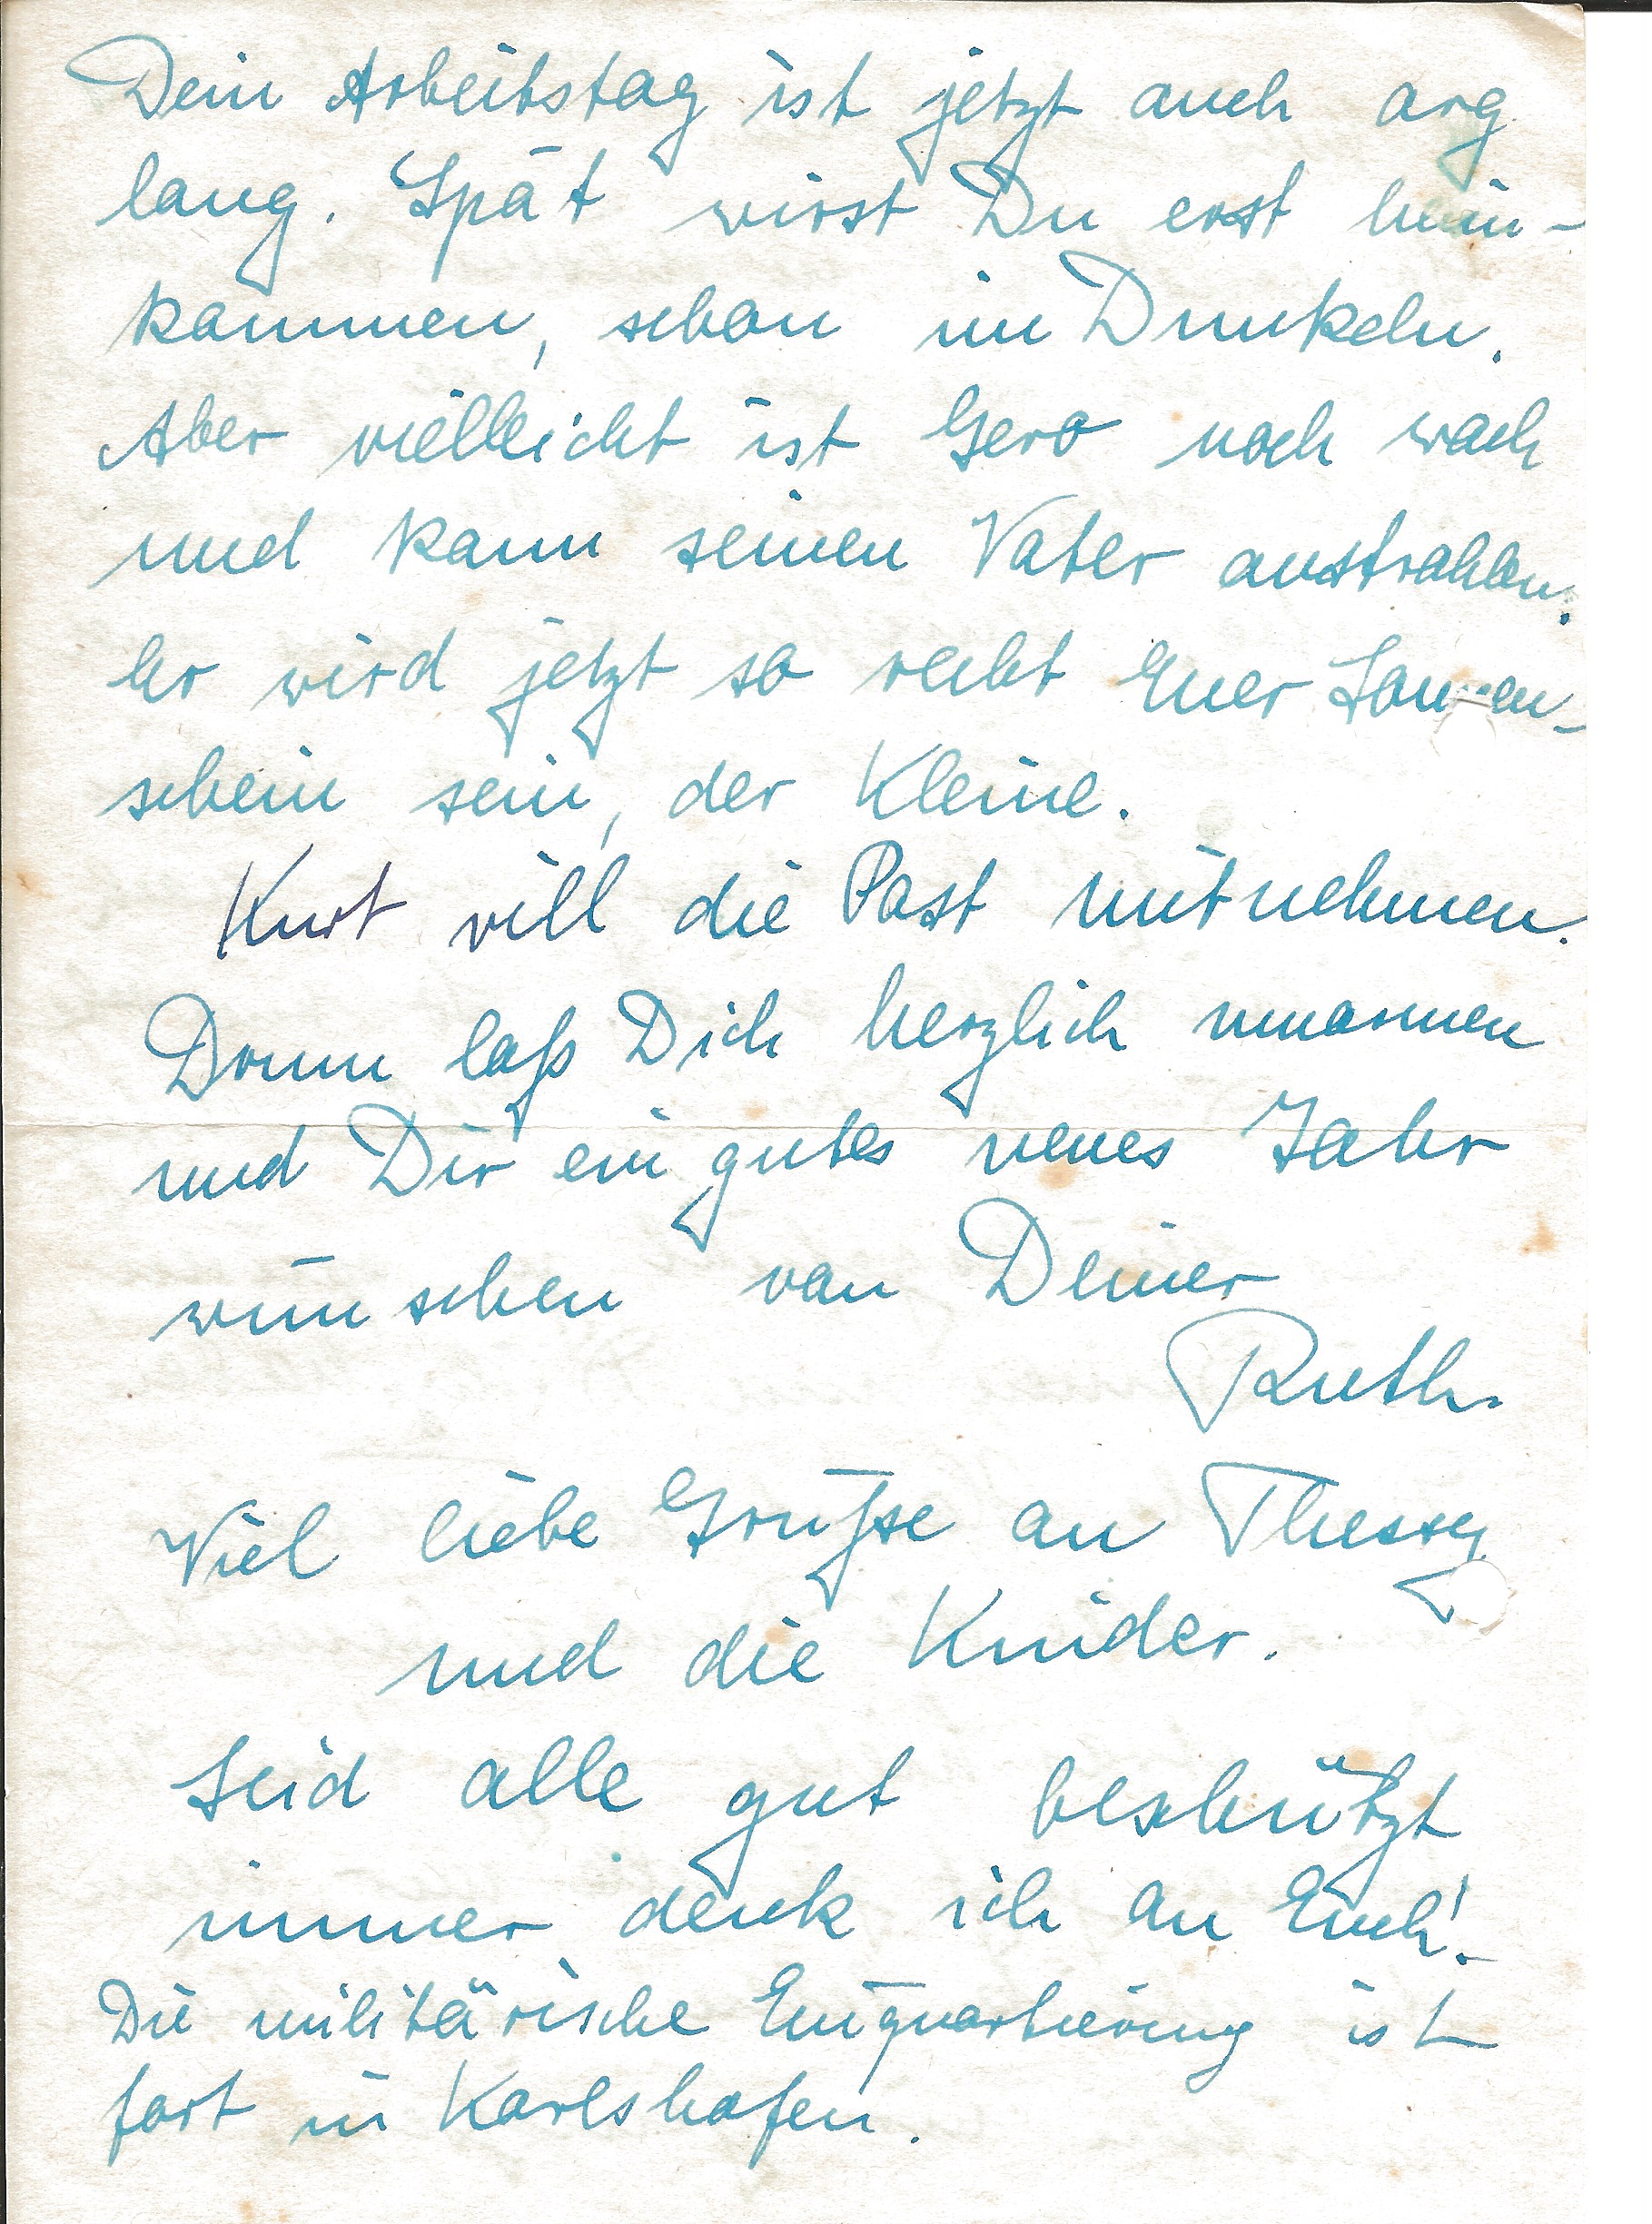 Dein Arbeitstag ist jetzt auch arg
lang. Spät wirst Du erst heim-
kommen, schon im Dunkeln.
Aber vielleicht ist Gero noch wach
und kann seinen Vater anstrahlen.
Er wird jetzt so recht Euer Sonnen-
schein sein, der Kleine.
Kurt will die Post mitnehmen.
Drum laß Dich herzlich umarmen
und Dir ein gutes neues Jahr
wünschen von Deiner
Ruth.
Viel liebe Grüße an Thessy
und die Kinder.
Seid alle gut beschützt
immer denk ich an Euch!
Die militärische Einquartierung ist
fort in Karlshafen.